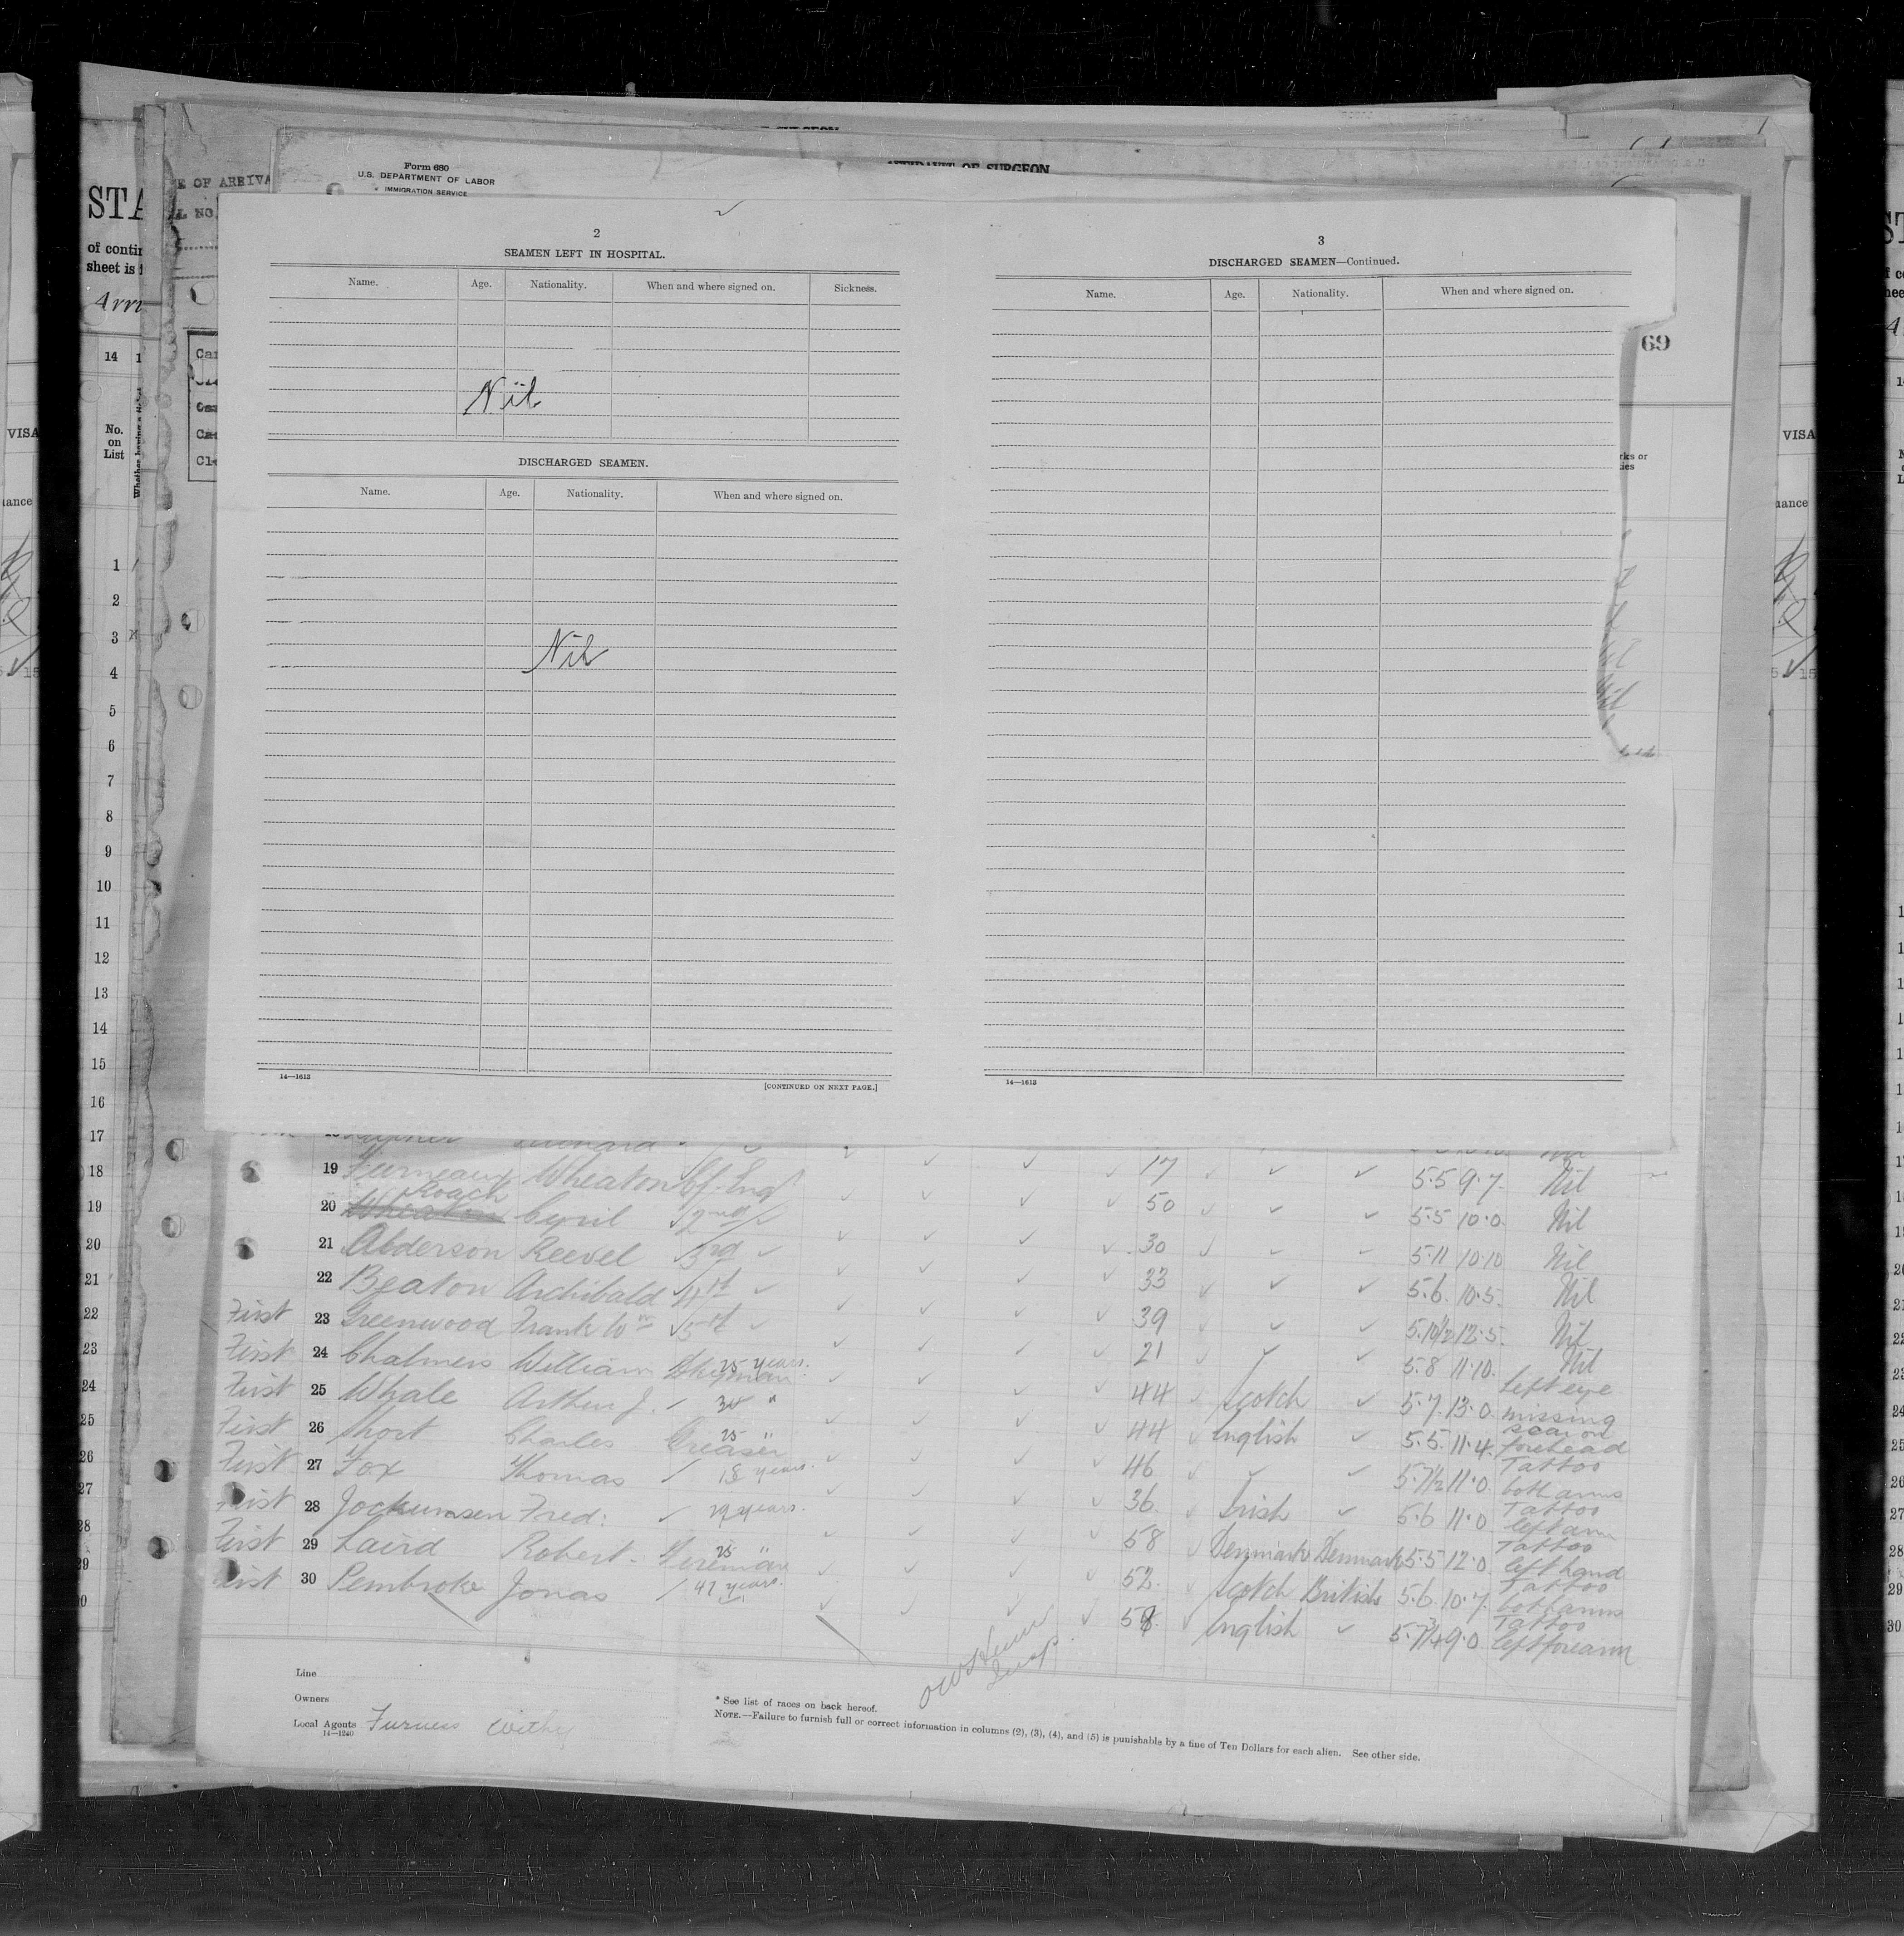 Form 680
U.S. DEPARTMENT OF LABOR
IMMIGRATION SERVICE
AFFIDAVIT OF SURGEON
STA
of contin
sheet is
Arri
14
No.
on
List
VISA
69
2
SEAMEN LEFT IN HOSPITAL.
Name. Age. Nationality. When and where signed on. Sickness.
Nil
DISCHARGED SEAMEN.
Name. Age. Nationality. When and where signed on.
Nil
14—1613 [CONTINUED ON NEXT PAGE.]
3
DISCHARGED SEAMEN—Continued.
Name. Age. Nationality. When and where signed on.
14—1613
1
2
3
4
5
6
7
8
9
10
11
12
13
14
15
16
17
18
19
20
21
22
23
24
25
26
27
28
29
19 Furneaux Wheaton Cf. Eng 17 5.5 9.7. Nil
Roach
20 Wheaton Cyril 2nd 50 5.5 10.0. Nil
21 Alderson Reevel 3rd 30 5.11 10.10 Nil
22 Beaton Archibald 4th 33 5.6. 10.5. Nil
First 23 Greenwood Frank Wm 5th 39 5.10½ 12.5. Nil
First 24 Chalmers William 25 years. 21 5.8 11.10. Nil
First 25 Whale Arthur J. 30 " 44 Scotch 5.7. 13.0. Left eye missing
First 26 Short Charles Greaser 25 " 44 English 5.5. 11.4. scar on forehead
First 27 Fox Thomas 18 years. 46 5.7½ 11.0. Tattoo both arms
First 28 Jochumsen Fred: years. 36 Irish 5.6 11.0 Tattoo left arm
First 29 Laird Robert. Fireman 25 " 58 Denmark Denmark 5.5 12.0 Tattoo left hand
First 30 Pembroke Jonas 47 years. 52. Scotch British 5.6. 10.7. Tattoo both arms
English 9.0. Tattoo left forearm
Line
Owners
Local Agents Furness Withy
14—1240
* See list of races on back hereof.
NOTE.—Failure to furnish full or correct information in columns (2), (3), (4), and (5) is punishable by a fine of Ten Dollars for each alien. See other side.